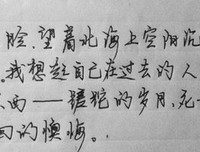 脸,望着北海上空阴沉
我想起自己在过去的人
西——蹉跎的岁月,死
回的懊悔。